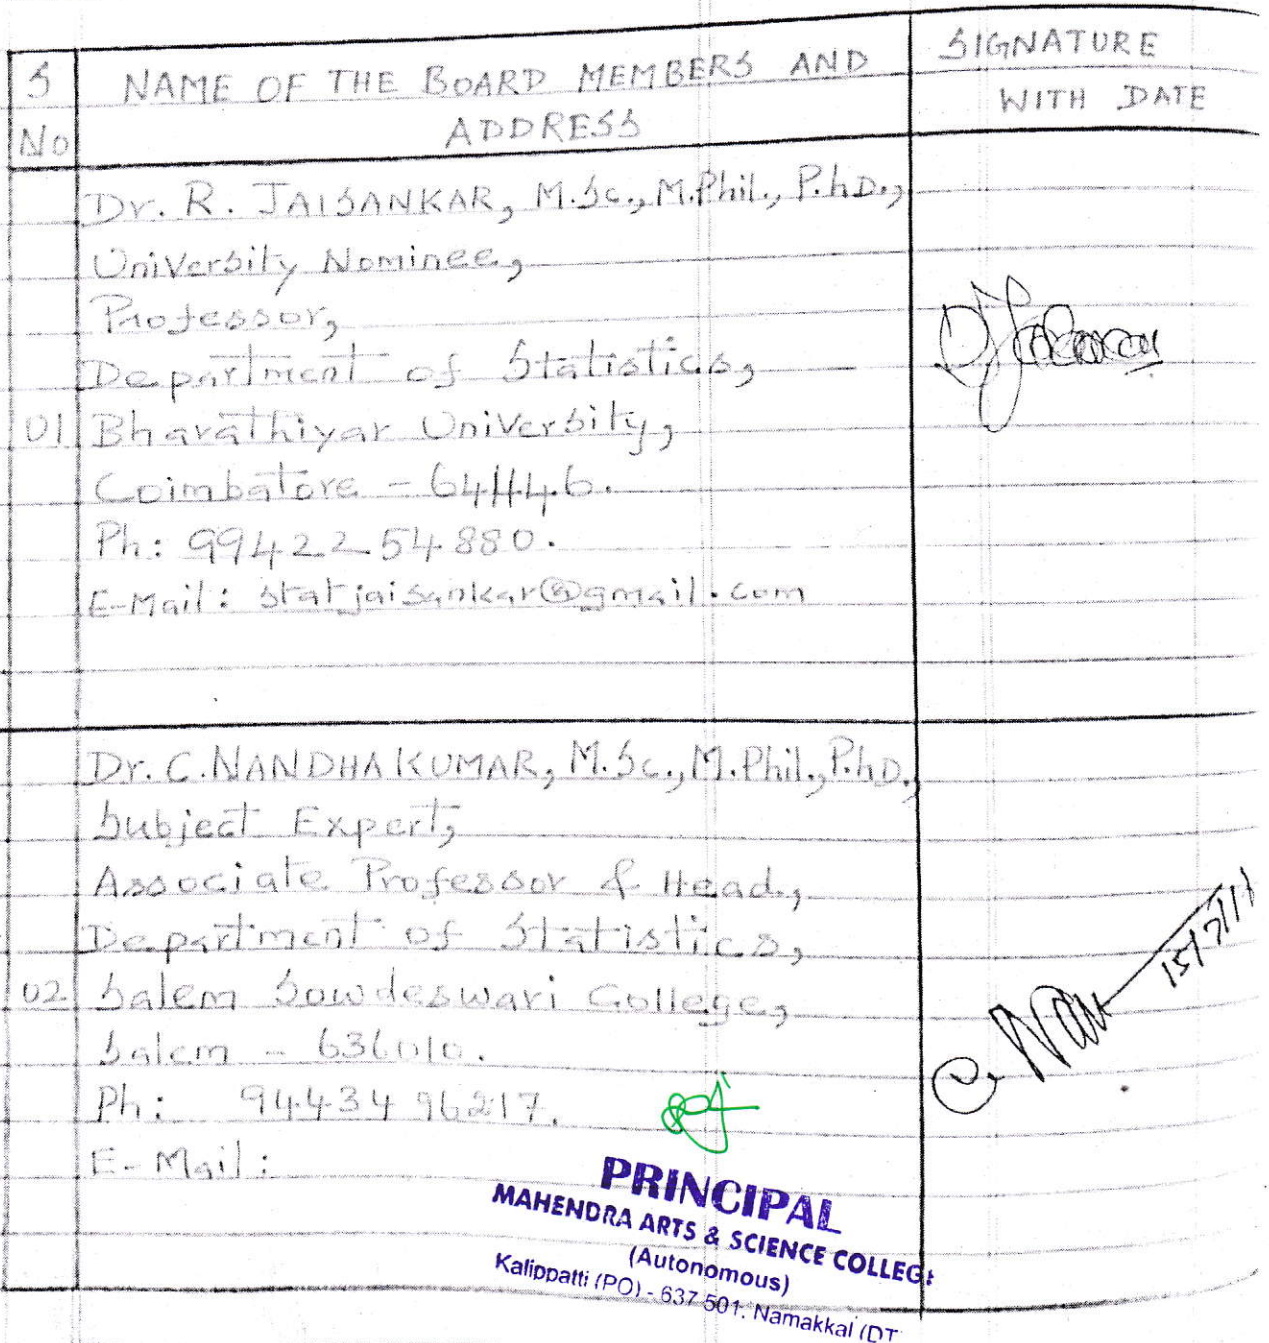 S No
NAME OF THE BOARD MEMBERS AND ADDRESS
SIGNATURE WITH DATE
Dr. R. JAISANKAR, M.Sc., M.Phil., P.hD.,
University Nominee,
Professor,
Department of Statistics,
01 Bharathiyar University,
Coimbatore - 641146.
Ph: 99422 54880.
E-Mail: statjaisankar@gmail.com
Dr. C. NANDHAKUMAR, M.Sc., M.Phil., P.hD.,
Subject Expert,
Associate Professor & Head,
Department of Statistics,
02 Salem Sowdeswari College,
Salem - 636010.
Ph: 94434 96217.
E-Mail:
PRINCIPAL
MAHENDRA ARTS & SCIENCE COLLEGE
(Autonomous)
Kalippatti (PO) - 637 501. Namakkal (DT